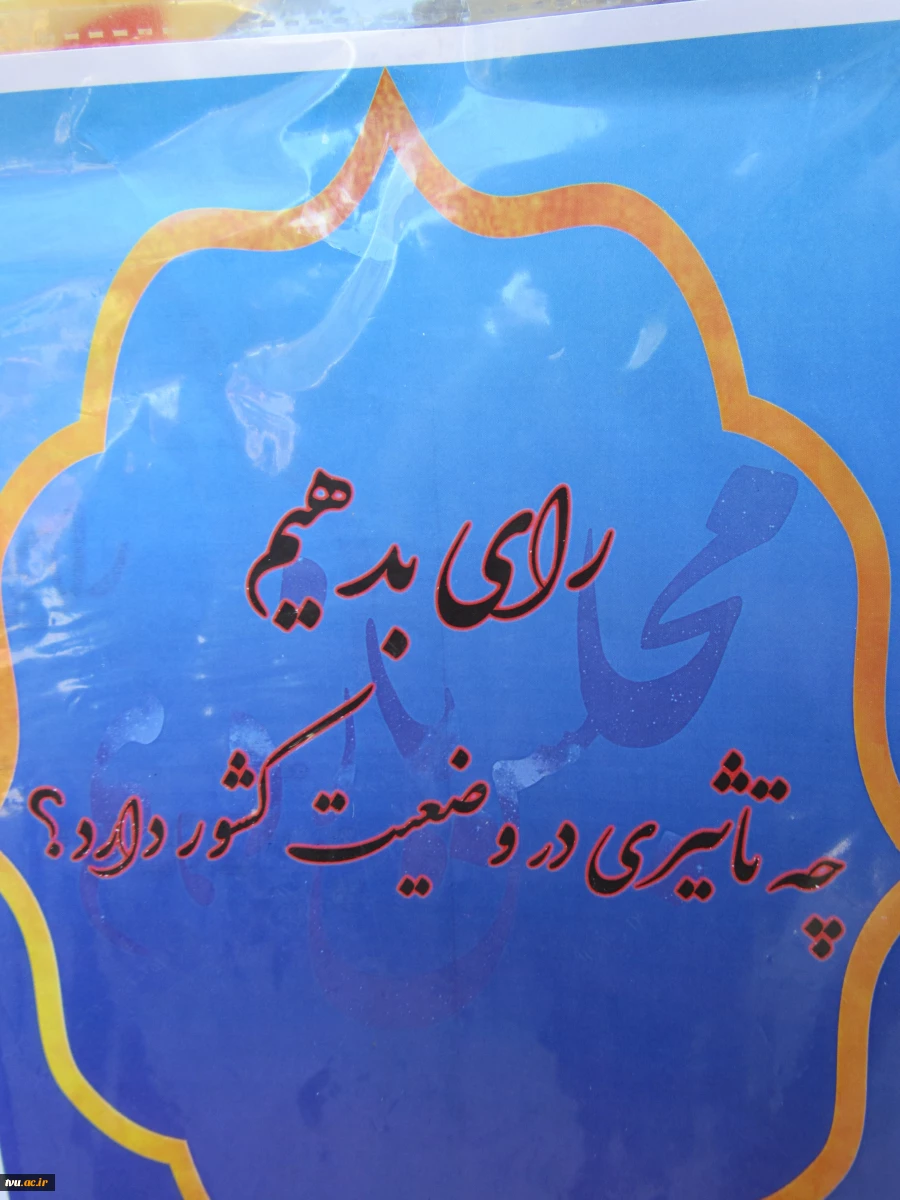 رای بدهیم
چه تاثیری در وضعیت کشور دارد؟
tvu.ac.ir